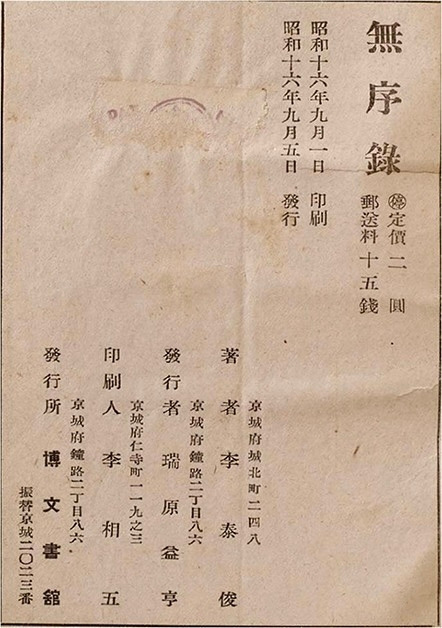 無序錄
㊡定價二圓
郵送料十五錢
昭和十六年九月一日 印刷
昭和十六年九月五日 發行
京城府城北町二四八
著者 李泰俊
京城府鐘路二丁目八六
發行者 瑞原益亨
京城府仁寺町一一九之三
印刷人 李相五
京城府鐘路二丁目八六
發行所 博文書舘
振替京城二〇二三番